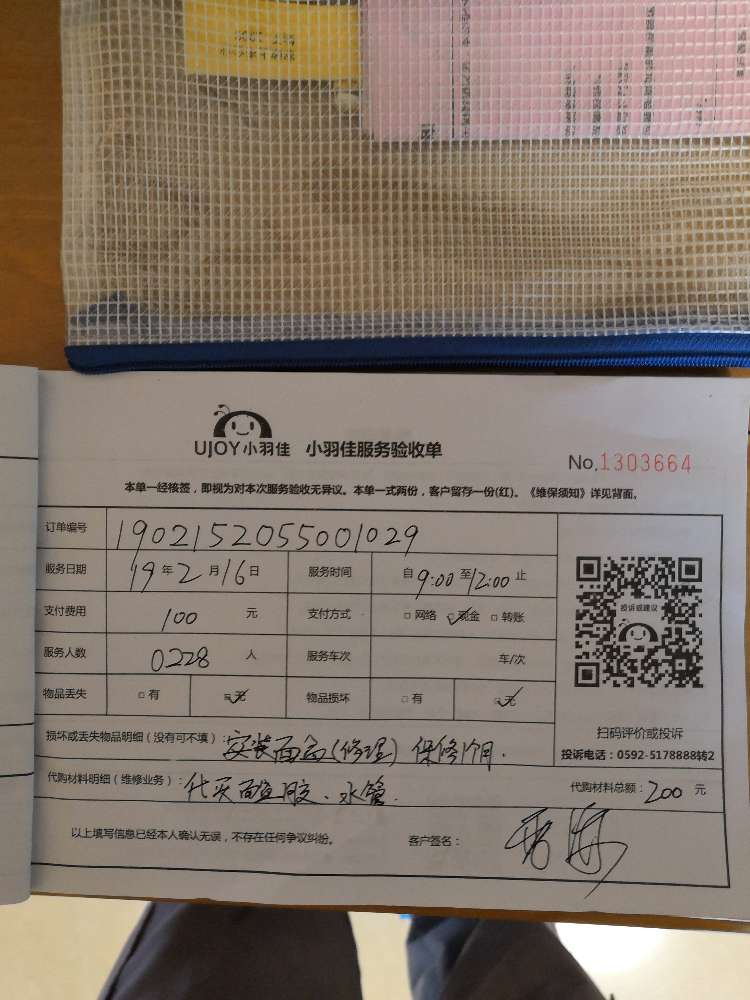 UJOY小羽佳 小羽佳服务验收单
No.1303664
本单一经核签，即视为对本次服务验收无异议。本单一式两份，客户留存一份(红)。《维保须知》详见背面。
订单编号 1902152055001029
服务日期 19年2月16日 服务时间 自9:00至12:00止
支付费用 100 元 支付方式 □网络 □现金 □转账
服务人数 0228 人 服务车次 车/次
物品丢失 □有 □无 物品损坏 □有 □无
投诉或建议
扫码评价或投诉
投诉电话：0592-5178888转2
损坏或丢失物品明细（没有可不填）：安装面盆(修理) 保修1个月.
代购材料明细（维修业务）：代买 胶、水管. 代购材料总额：200 元
以上填写信息已经本人确认无误，不存在任何争议纠纷。 客户签名：